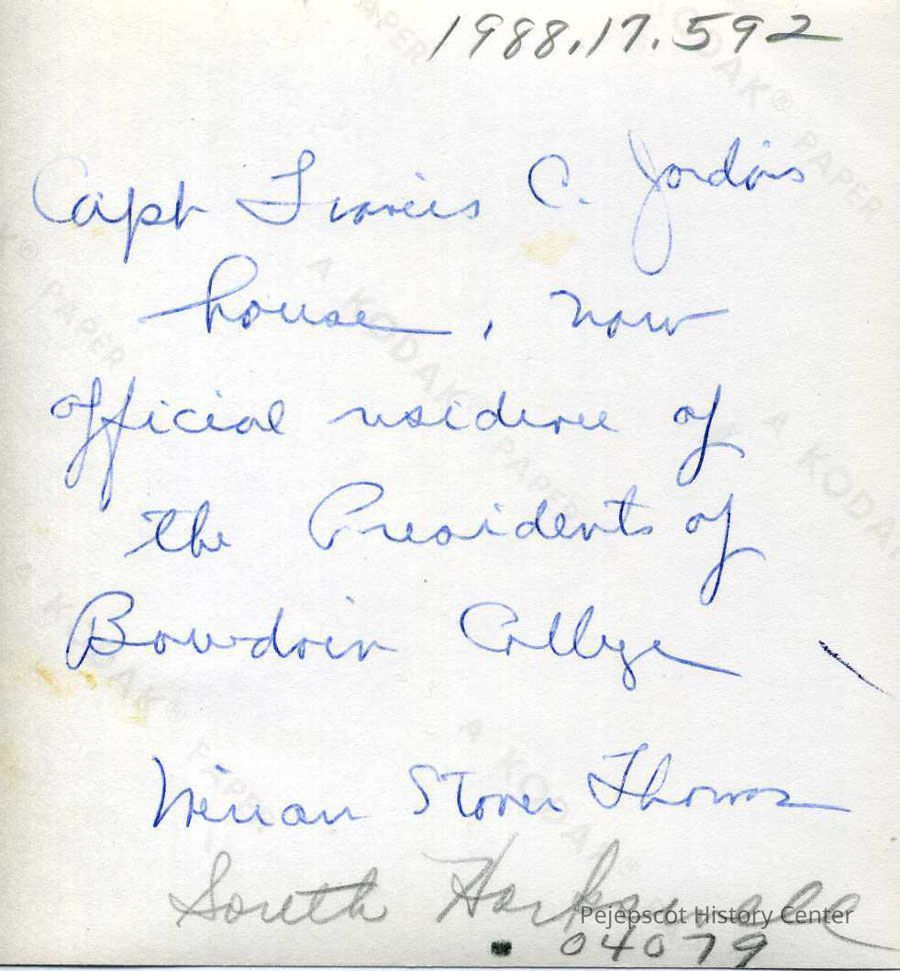 1988.17.592
Capt Francis C. Jordan's
house, now
official residence of
the Presidents of
Bowdoin College
Miriam Stover Thomas
South Harpswell
Pejepscot History Center
04079
A KODAK® PAPER